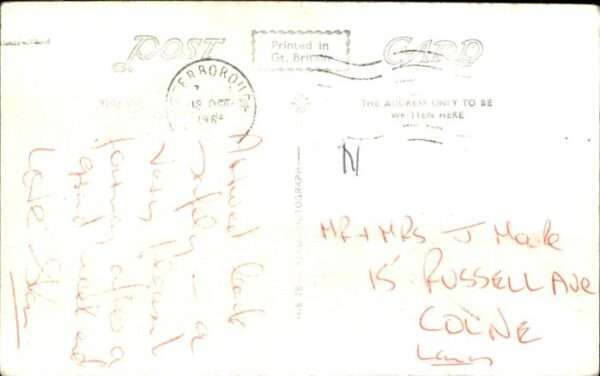 POST CARD
Printed in
Gt. Britain
ERBOROUGH
THE ADDRESS ONLY TO BE
WRITTEN HERE
N
Arrived back
safely – a
very pleasant
journey after a
good week end
MR + MRS J
15 RUSSELL AVE
COLNE
Lancs